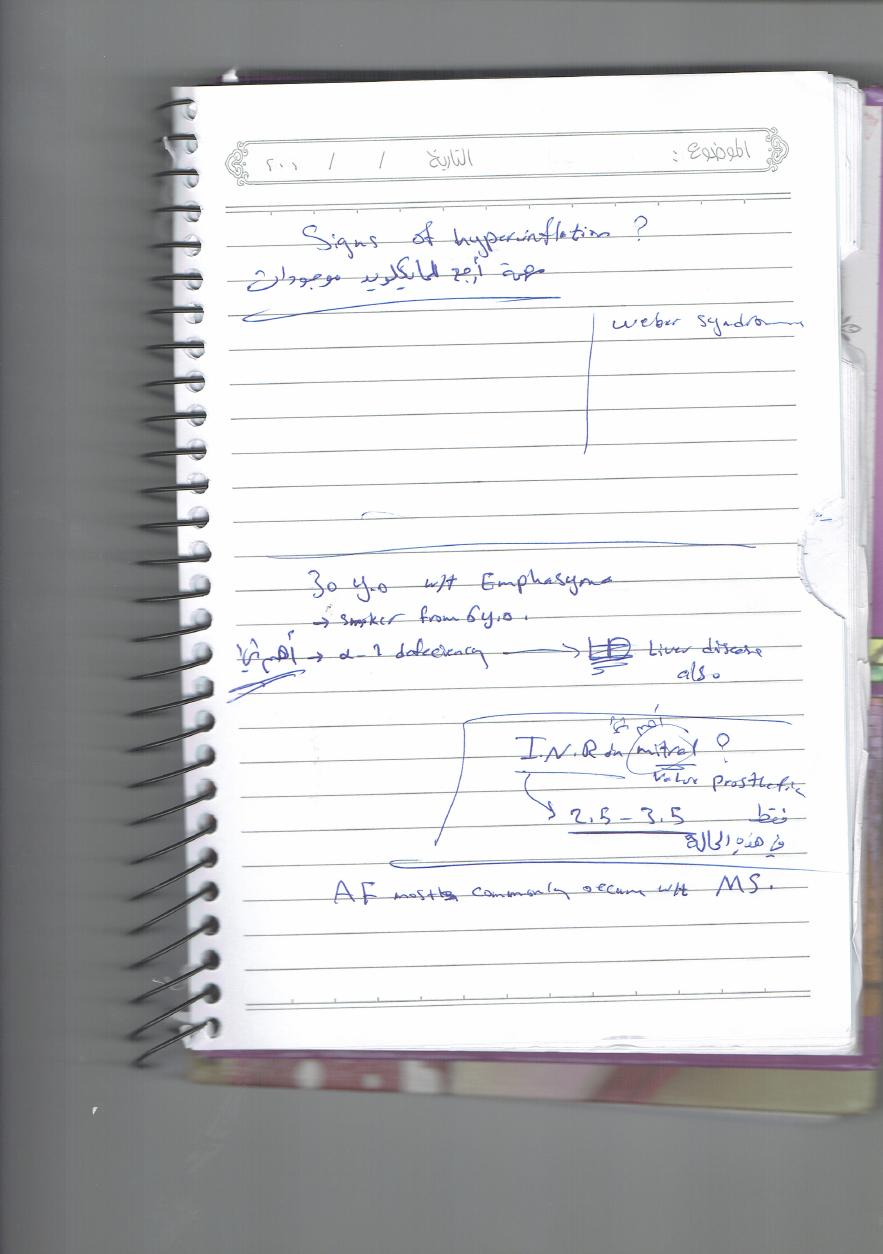 الموضوع : التاريخ / / ٢٠٠
Signs of hyperinflation ?
مهمة أرجع للمايكلويد موجودات
Weber syndrome
30 y.o w/t Emphasyma
→ smoker from 6 y.o.
→ α-1 deficiency → Liver disease
also
I.N.R in mitral ?
valve prosthetic
2.5 - 3.5 فقط
في هذه الحالة
AF mostly commonly occurs w/t MS.